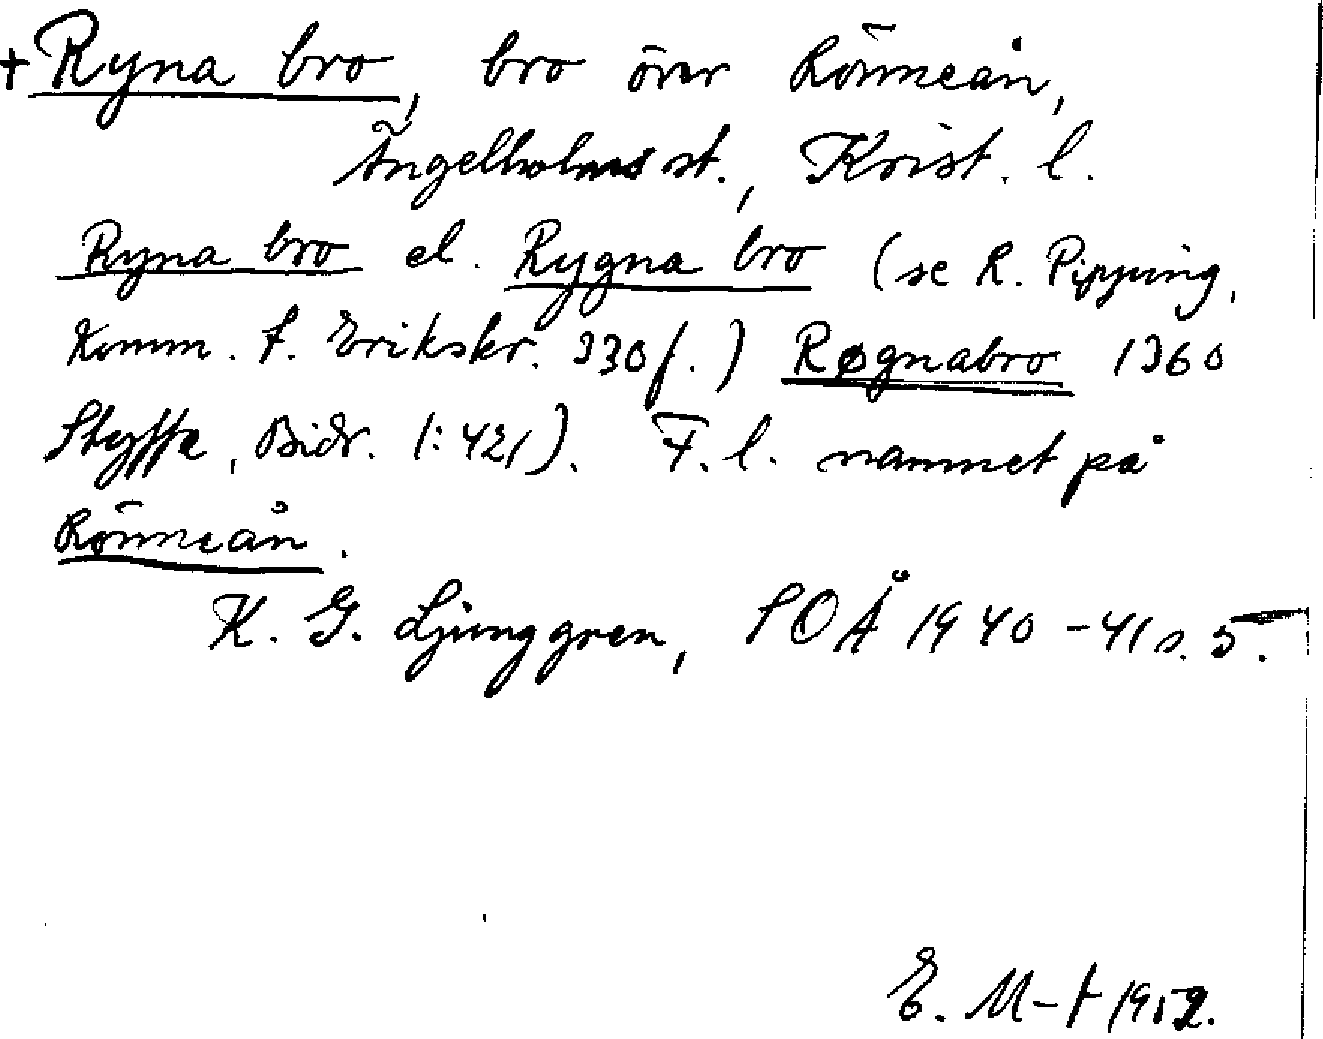 + Ryna bro, bro över Rönneån,
Ängelholms st., Krist. l.
Ryna bro el. Rygna bro (se R. Pipping,
Komm. t. Erikskr. 330 f.) Røgnabro 1360
Styffe, Bidr. 1:421). F. l. namnet på
Rönneån.
K. G. Ljunggren, SOÅ 1940-41 s. 5.
E. M-t 1952.